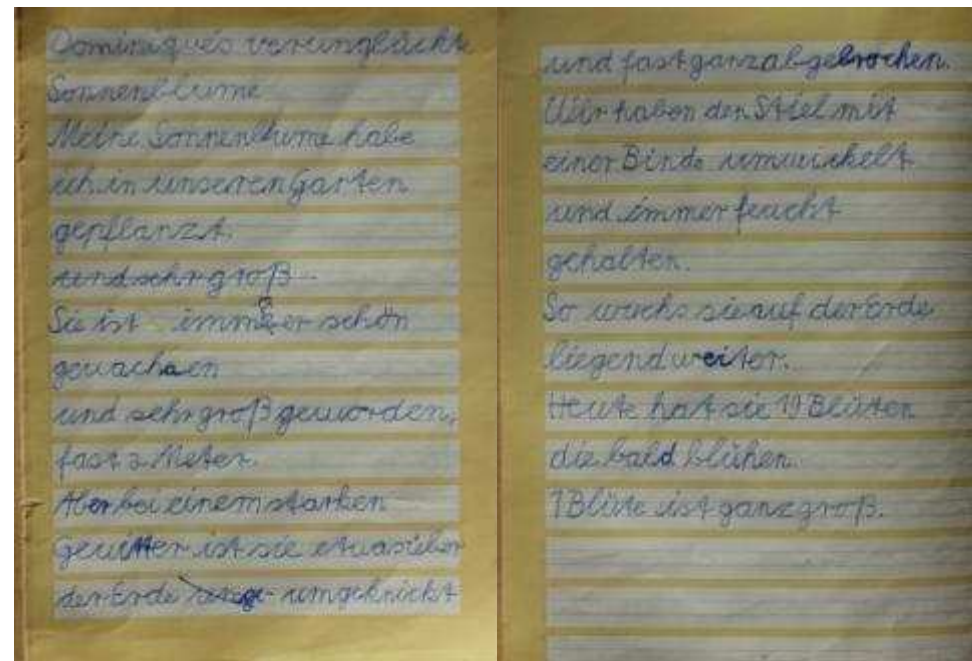 Dominiques verunglückte
Sonnenblume
Meine Sonnenblume habe
ich in unseren Garten
gepflanzt.
und sehr groß
Sie ist immer schön
gewachsen
und sehr groß geworden,
fast 2 Meter.
Aber bei einem starken
Gewitter ist sie etwas über
der Erde umgeknickt
und fast ganz abgebrochen.
Wir haben den Stiel mit
einer Binde umwickelt
und immer feucht
gehalten.
So wuchs sie auf der Erde
liegend weiter.
Heute hat sie 19 Blüten
die bald blühen.
1 Blüte ist ganz groß.